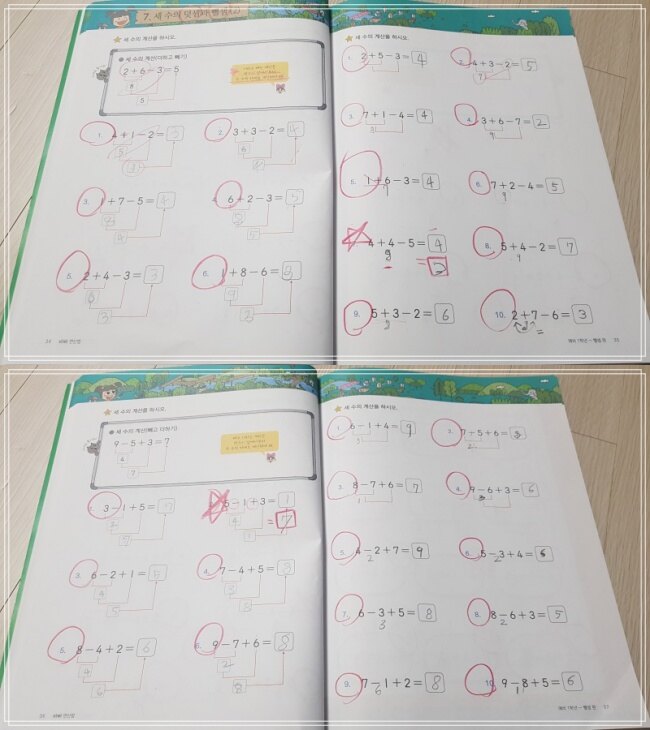 7. 세 수의 덧셈과 뺄셈(2)
세 수의 계산을 하시오.
● 세 수의 계산(더하고 빼기)
2+6-3=5
8
5
1. 4+1-2=3
5
3
2. 3+3-2=4
6
4
3. 1+7-5=
4. 6+2-3=5
5
5. 2+4-3=3
6
3
6. 1+8-6=
9
34
세 수의 계산을 하시오.
1. 2+5-3=4
2. 4+3-2=5
7
3. 7+1-4=4
4. 3+6-7=2
9
5. 1+6-3=4
7
6. 7+2-4=5
9
4+4-5=4
=
8. 5+4-2=7
9
9. 5+3-2=6
10. 2+7-6=3
=
35
세 수의 계산을 하시오.
● 세 수의 계산(빼고 더하기)
9-5+3=7
4
7
3-1+5=7
2
7
5-1+3=1
4
= 7
3. 6-2+1=5
4
5
4. 7-4+5=8
3
8
5. 8-4+2=6
4
6
9-7+6=8
2
8
세 수의 계산을 하시오.
1. 6-1+4=9
7-5+6=8
2
3. 8-7+6=7
1
4. 9-6+3=6
3
5. 4-2+7=9
2
6. 5-3+4=6
2
7. 6-3+5=8
3
8. 8-6+3=5
2
9. 7-1+2=8
6
10. 9-8+5=6
1